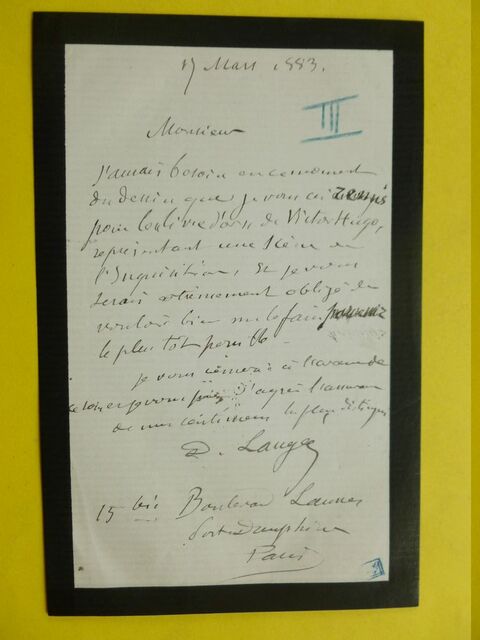 17 Mars 1883.
III
Monsieur
J'aurais besoin en ce moment
du dessin que je vous ai remis
pour le livre d'or de Victor Hugo,
représentant une scène de
l'Inquisition, et je vous
serais extrêmement obligé de
vouloir bien me le faire parvenir
le plus tôt possible
je vous remercie à l'avance de
ce soin et je vous prie d'agréer l'assurance
de mes sentiments les plus distingués
D. Laugée
15 bis Boulevard Lannes
Porte Dauphine
Paris